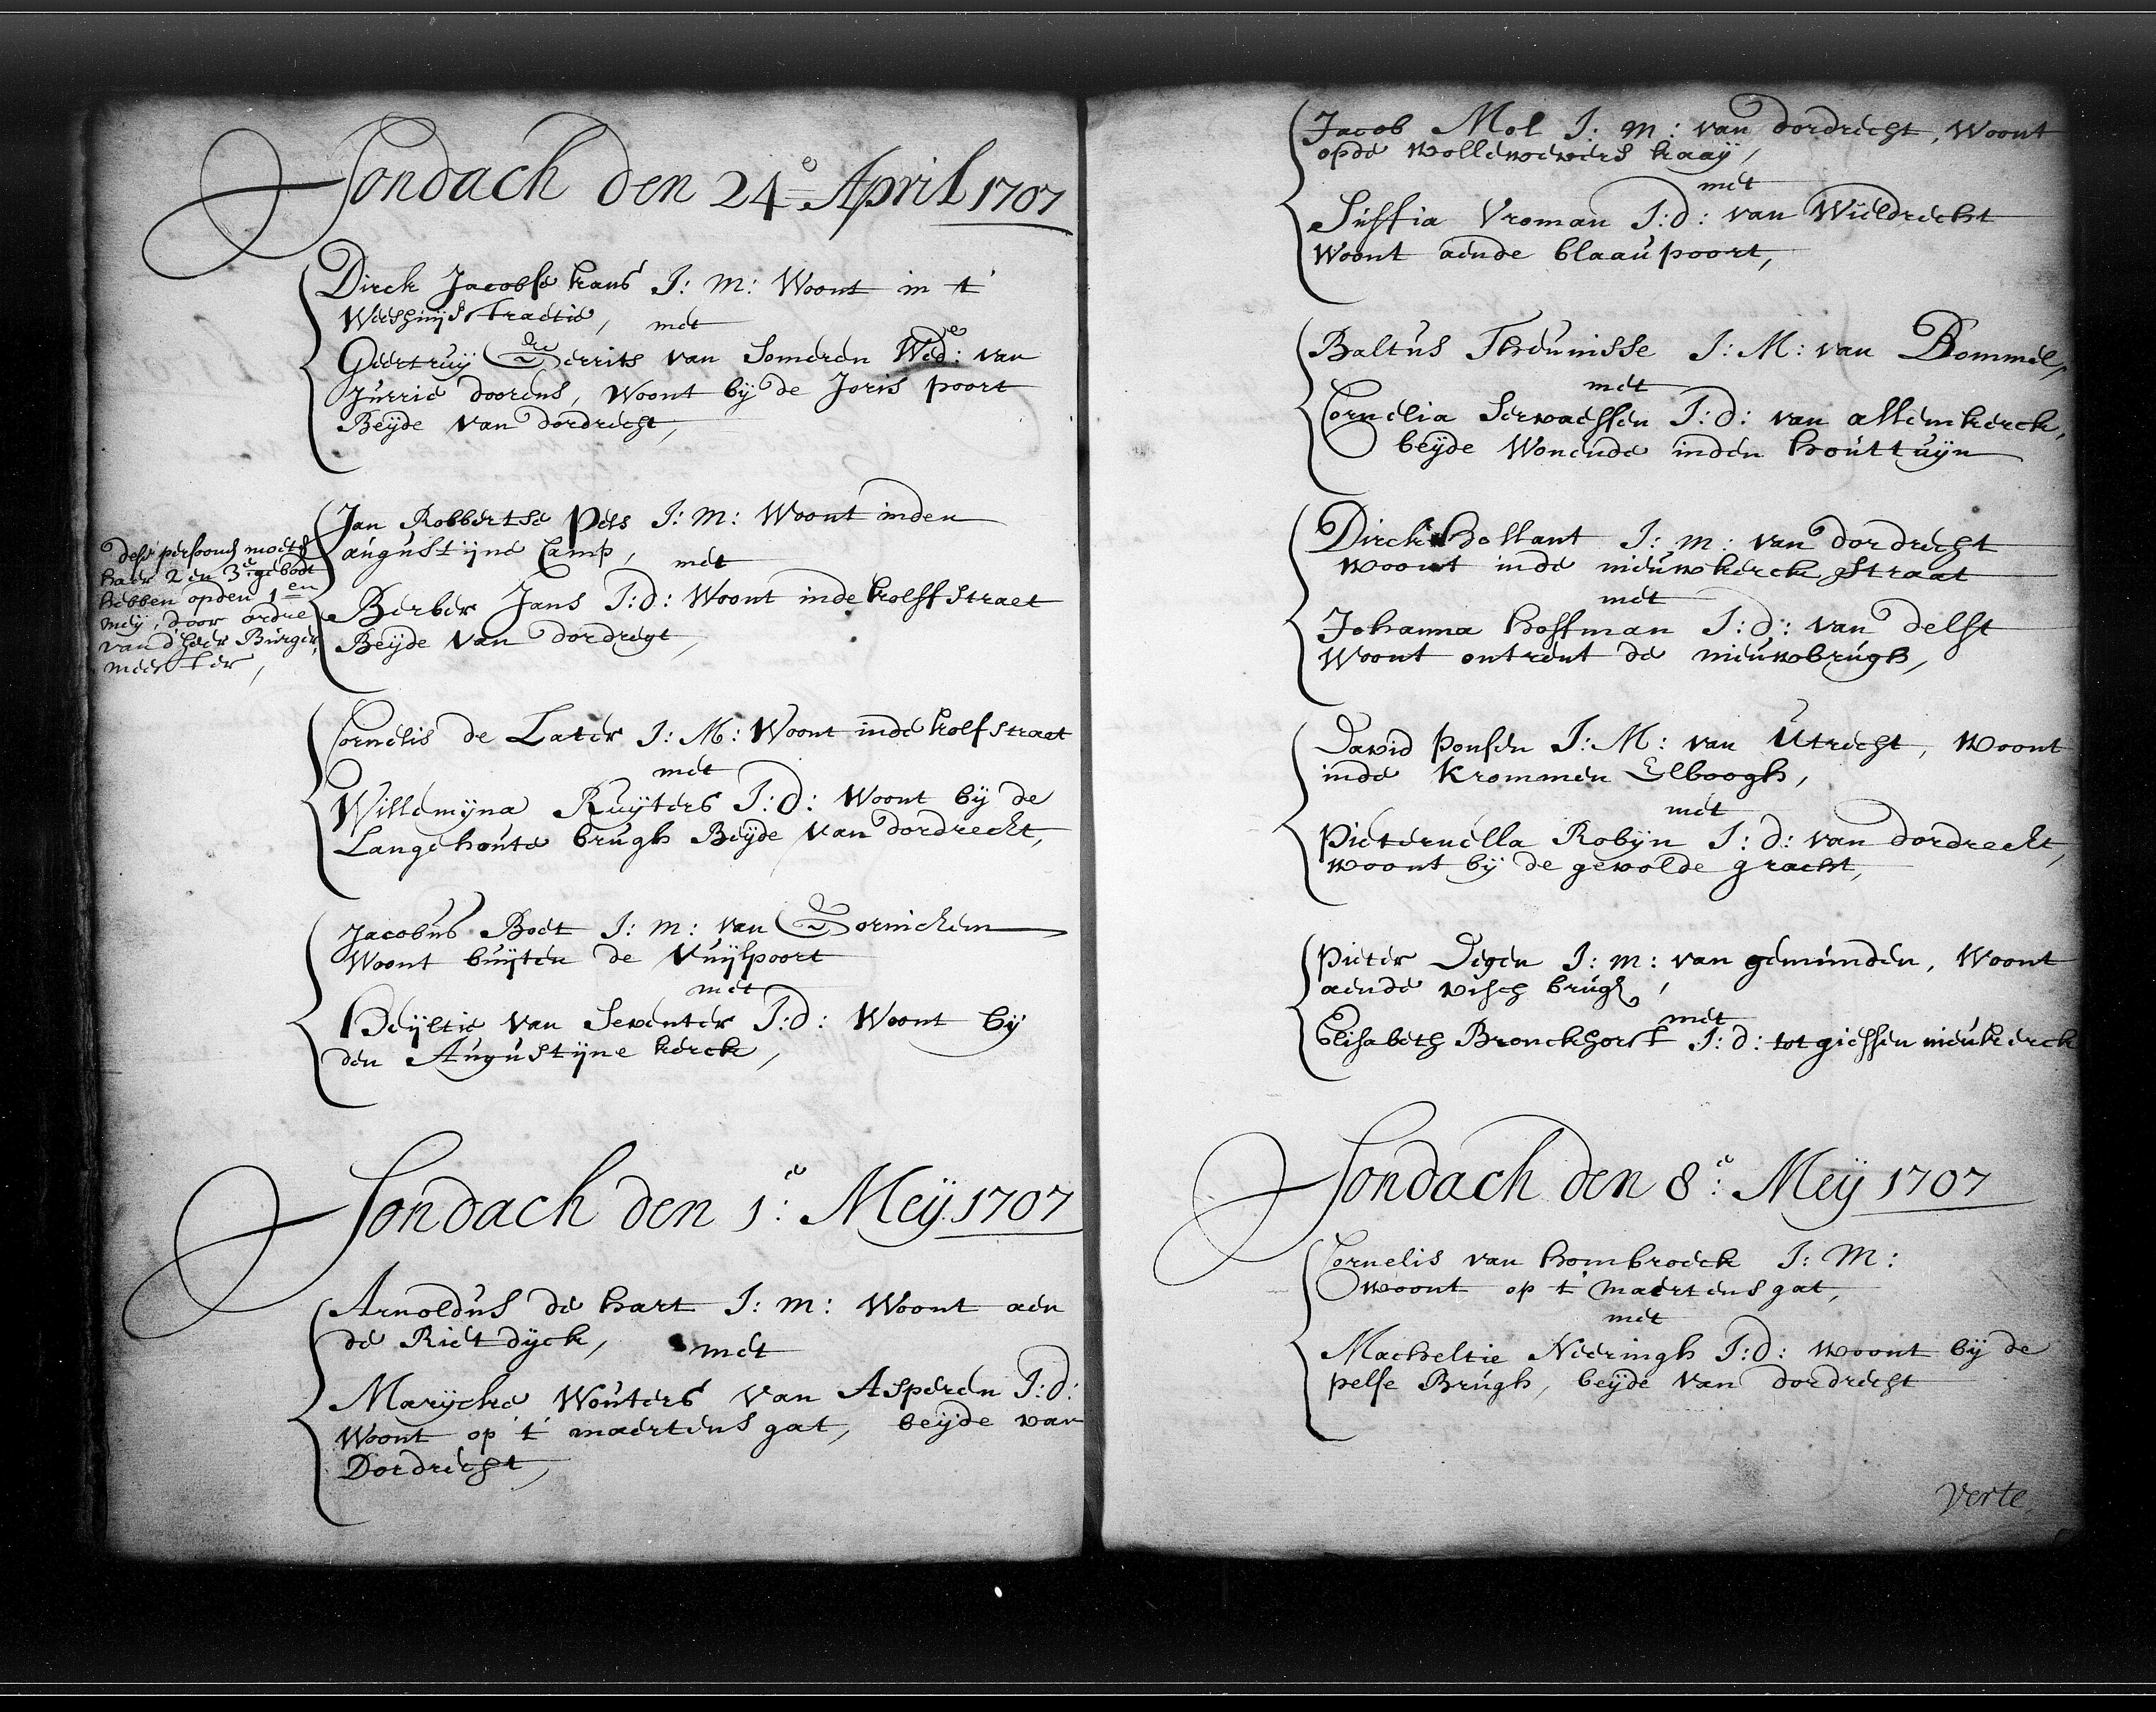 Sondach den 24e April 1707
Dirck Jacobse kans J: M: Woont in t'
Weeshuijs straetie, met
Geertruij Gerrits van Someren Wede: van
Jurrie doorens, Woont bij de Joris poort
Beijde van dordrecht,
Jan Robbertse Pels J: M: Woont inden
augustijne Camp, met
Berber Jans J:d: Woont inde kolffstraet
Beijde van dordregt,
dese persoons moeten
haer 2 en 3e gebodt
hebben opden 1en
meij, door ordre
van d'heer Burger
meester,
Cornelis de Later J: M: Woont inde kolfstraet
met
Willemijna Ruijters J:d: Woont bij de
Langehoute brugh Beijde van dordrecht,
Jacobus Boet J: m: van Gornichem
Woont buijten de Vuijlpoort
met
Heijltie van Seventer J:d: Woont bij
den Augustijne kerck,
Sondach den 1e: Meij 1707
Arnoldus de hart J: m: Woont aen
de Riet dijck, met
Marijche Wouters van Asperen J:d:
Woont op 't maertens gat, beijde van
Dordrecht,
Jacob Mol J: m: van dordrecht, Woont
opde wollewevers kaaij,
met
Suffia Vroman J:d: van Wieldrecht
Woont aende blaaupoort,
Baltus Theunisse J: M: van Bommel,
met
Cornelia Servaessen J:d: van allemkerck,
beijde Wonende inden houttuijn
Dirck Hollant J: m: van dordrecht
woont inde nieuwkerck straat
met
Johanna hoffman J:d: van delft
Woont ontrent de nieuwbrugh,
David Ponsen J: M: van Utrecht, woont
inde Krommen Elboogh,
met
Pieternella Robijn J: d: van dordrecht,
woont bij de gewolde gracht,
Pieter Degen J: m: van gemunden, Woont
aende visch brugh,
met
Elisabeth Bronckhorst J: d: tot giessen nieukerck
Sondach den 8e: Meij 1707
Cornelis van hombroeck J: M:
woont op t' maertens gat,
met
Macheltie Neeringh J:d: woont bij de
pelse Brugh, beijde van dordrecht
Verte,